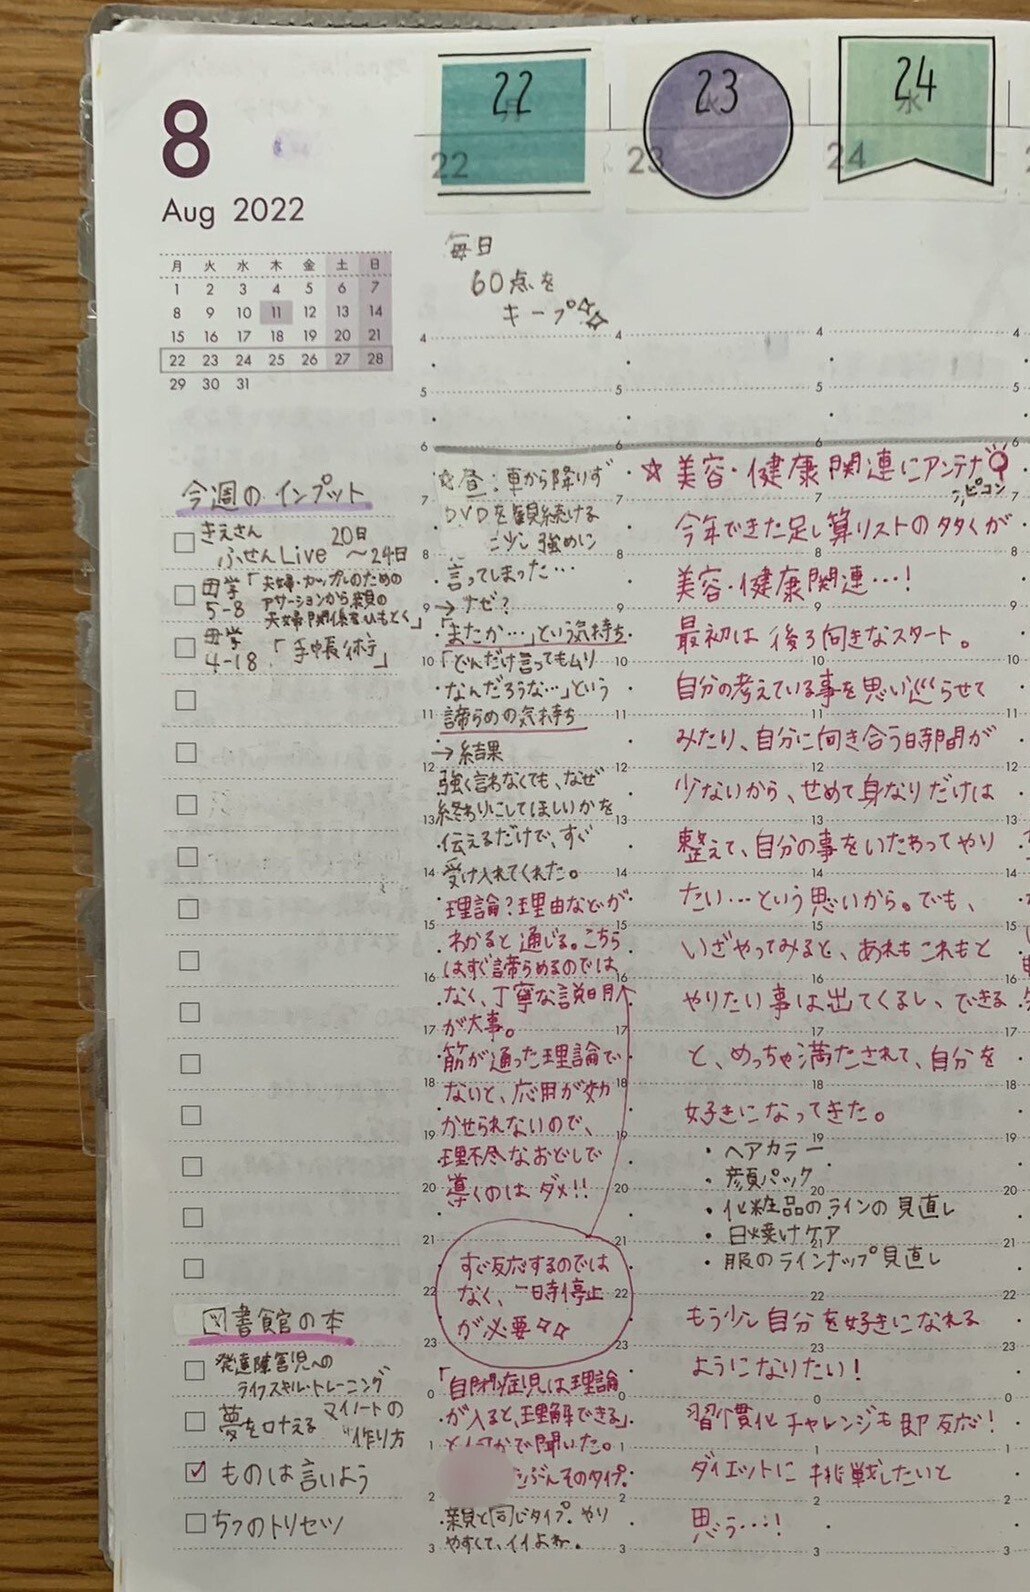 8
Aug 2022
月 火 水 木 金 土 日
1 2 3 4 5 6 7
8 9 10 11 12 13 14
15 16 17 18 19 20 21
22 23 24 25 26 27 28
29 30 31
今週のインプット
きえさん 20日
ふせんLive 〜24日
母学「夫婦・カップルのための
5-8 アサーションから親の
夫婦関係をひもとく」
母学
4-18 「手帳術」
図書館の本
発達障害児への
ライフスキル・トレーニング
夢を叶える マイノートの
作り方
ものは言いよう
5つのトリセツ
22
月
22
毎日
60点を
キープ☆☆
☆昼:車から降りず
DVDを観続ける
少し強めに
言ってしまった…
→ナゼ?
「またか…」という気持ち
「どんだけ言ってもムリ
なんだろうな…」という
諦らめの気持ち
→結果
強く言わなくても、なぜ
終わりにしてほしいかを
伝えるだけで、すぐ
受け入れてくれた。
理論?理由などが
わかると通じる。こちら
はすぐ諦らめるのでは
なく、丁寧な説明
が大事。
筋が通った理論で
ないと、応用が効
かせられないので、
理不尽なおどしで
導くのはダメ!!
すぐ反応するのでは
なく、一時停止
が必要☆☆
「自閉症児は理論
が入ると、理解できる」
と何かで聞いた。
ぶんそのタイプ。
親と同じタイプ。やり
やすくて、イイよね。
23
火
23
☆美容・健康関連にアンテナ
ピコン
今年できた足し算リストの多くが
美容・健康関連…!
最初は後ろ向きなスタート。
自分の考えている事を思い巡らせて
みたり、自分に向き合う時間が
少ないから、せめて身なりだけは
整えて、自分の事をいたわってやり
たい…という思いから。でも、
いざやってみると、あれもこれもと
やりたい事は出てくるし、できる
と、めっちゃ満たされて、自分を
好きになってきた。
・ヘアカラー
・顔パック
・化粧品のラインの見直し
・日焼けケア
・服のラインナップ見直し
もう少し自分を好きになれる
ようになりたい!
習慣化チャレンジも即反応!
ダイエットに挑戦したいと
思う…!
24
水
24
4
5
6
7
8
9
10
11
12
13
14
15
16
17
18
19
20
21
22
23
0
1
2
3